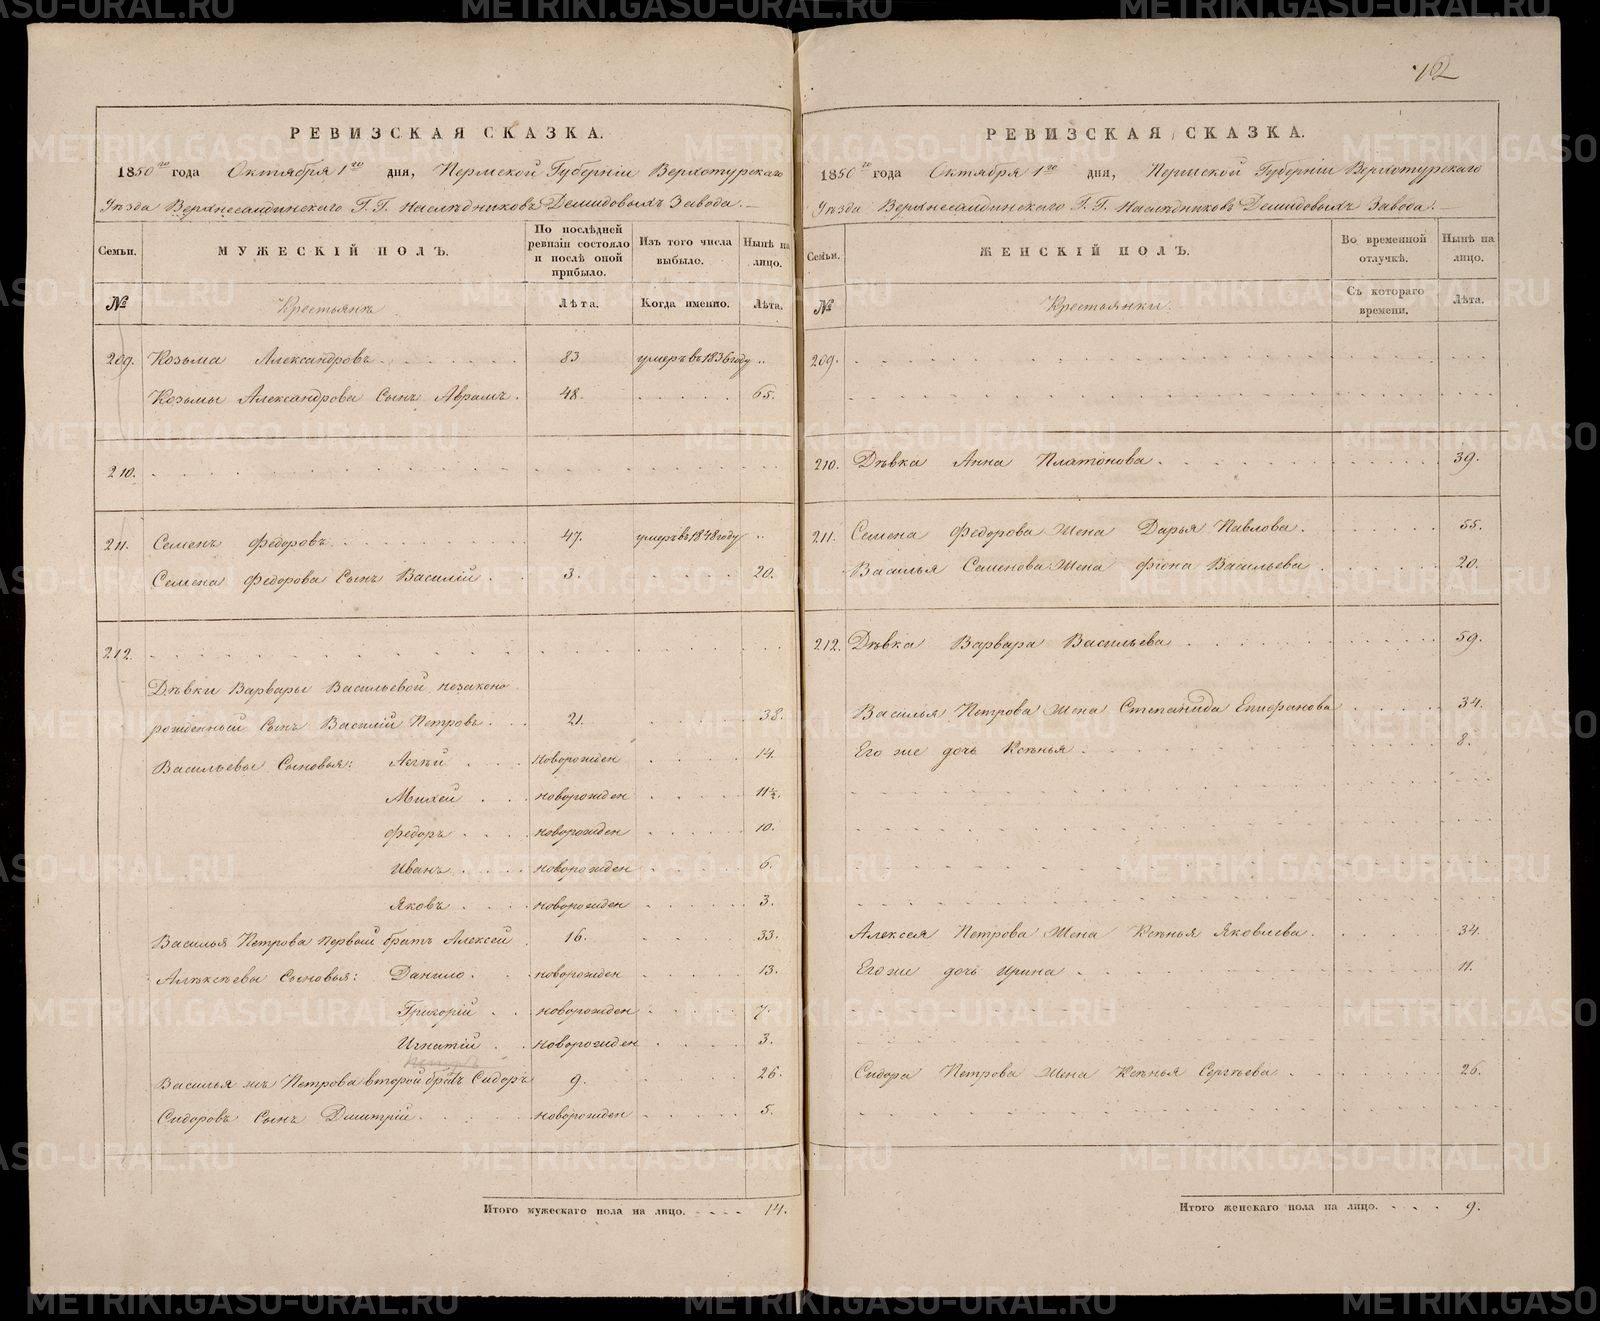 12
РЕВИЗСКАЯ СКАЗКА.
1850го года Октября 1го дня, Пермской Губерніи Верхотурскаго
Уѣзда Верхнесалдинскаго Г. Г. Наслѣдниковъ Демидовыхъ Завода.
Семьи.
МУЖЕСКІЙ ПОЛЪ.
По послѣдней ревизіи состояло и послѣ оной прибыло.
Изъ того числа выбыло.
Нынѣ на лицо.
№
Крестьянъ
Лѣта.
Когда именно.
Лѣта.
209. Козьма Александровъ 83 умеръ въ 1836 году
Козьмы Александрова Сынъ Аврамъ. 48. 65.
210.
211. Семенъ Федоровъ 47. умеръ въ 1848 году
Семена Федорова Сынъ Василій 3. 20.
212.
Дѣвки Варвары Васильевой незаконо
рожденный Сынъ Василій Петровъ 21. 38.
Васильевы Сыновья: Агѣй новорожден 14.
Михей новорожден 11½.
Федоръ новорожден 10.
Иванъ новорожден 6.
Яковъ новорожден 3.
Василья Петрова первый братъ Алексей 16. 33.
Алѣксѣева Сыновья: Данило новорожден 13.
Григорій новорожден 7.
Игнатій новорожден 3.
Василья жъ Петрова второй братъ Сидоръ 9. 26.
Сидоровъ Сынъ Дмитрій новорожден 5.
Итого мужескаго пола на лицо. 14.
РЕВИЗСКАЯ СКАЗКА.
1850го года Октября 1го дня, Пермской Губерніи Верхотурскаго
Уѣзда Верхнесалдинскаго Г. Г. Наслѣдниковъ Демидовыхъ Завода.
Семьи.
ЖЕНСКІЙ ПОЛЪ.
Во временной отлучкѣ.
Нынѣ на лицо.
№
Крестьянки.
Съ котораго времени.
Лѣта.
209.
210. Дѣвка Анна Платонова. 39.
211. Семена Федорова Жена Дарья Павлова. 55.
Василья Семенова Жена Фіона Васильева 20.
212. Дѣвка Варвара Васильева 59.
Василья Петрова Жена Степанида Епифанова 34.
Его же дочь Ксѣнья 8.
Алексея Петрова Жена Ксѣнья Яковлева. 34.
Его же дочь Ирина 11.
Сидора Петрова Жена Ксѣнья Сергѣева 26.
Итого женскаго пола на лицо. 9.
METRIKI.GASO-URAL.RU